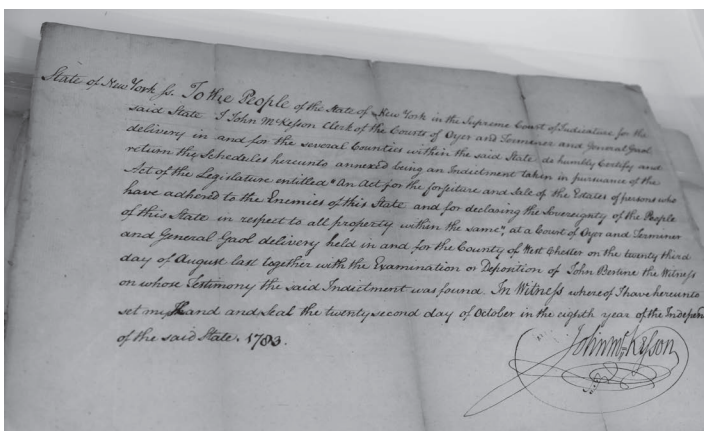 State of New York ss. To the People of the State of New York in the Supreme Court of Judicature for the
said State I John McKesson Clerk of the Courts of Oyer and Terminer and General Gaol
delivery in and for the several Counties within the said State, do humbly Certify and
return the Schedules hereunto annexed being an Indictment taken in pursuance of the
Act of the Legislature entitled "An Act for the forfeiture and Sale of the Estates of persons who
have adhered to the Enemies of this State and for declaring the Sovereignty of the People
of this State in respect to all property within the same", at a Court of Oyer and Terminer
and General Gaol delivery held in and for the County of West Chester on the twenty third
day of August last together with the Examination or Deposition of John Bertine the Witness
on whose Testimony the said Indictment was found. In Witness whereof I have hereunto
set my Hand and Seal the twenty second day of October in the eighth year of the Indepen
of the said State. 1783.
John McKesson